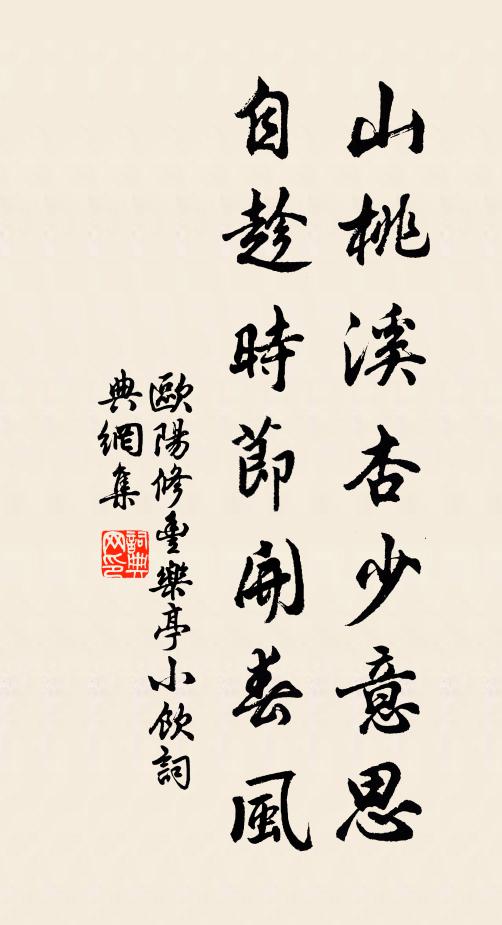 山桃溪杏少意思
自趁時節開春風
歐陽修豐樂亭小飲詞
典網集
詞典
网印